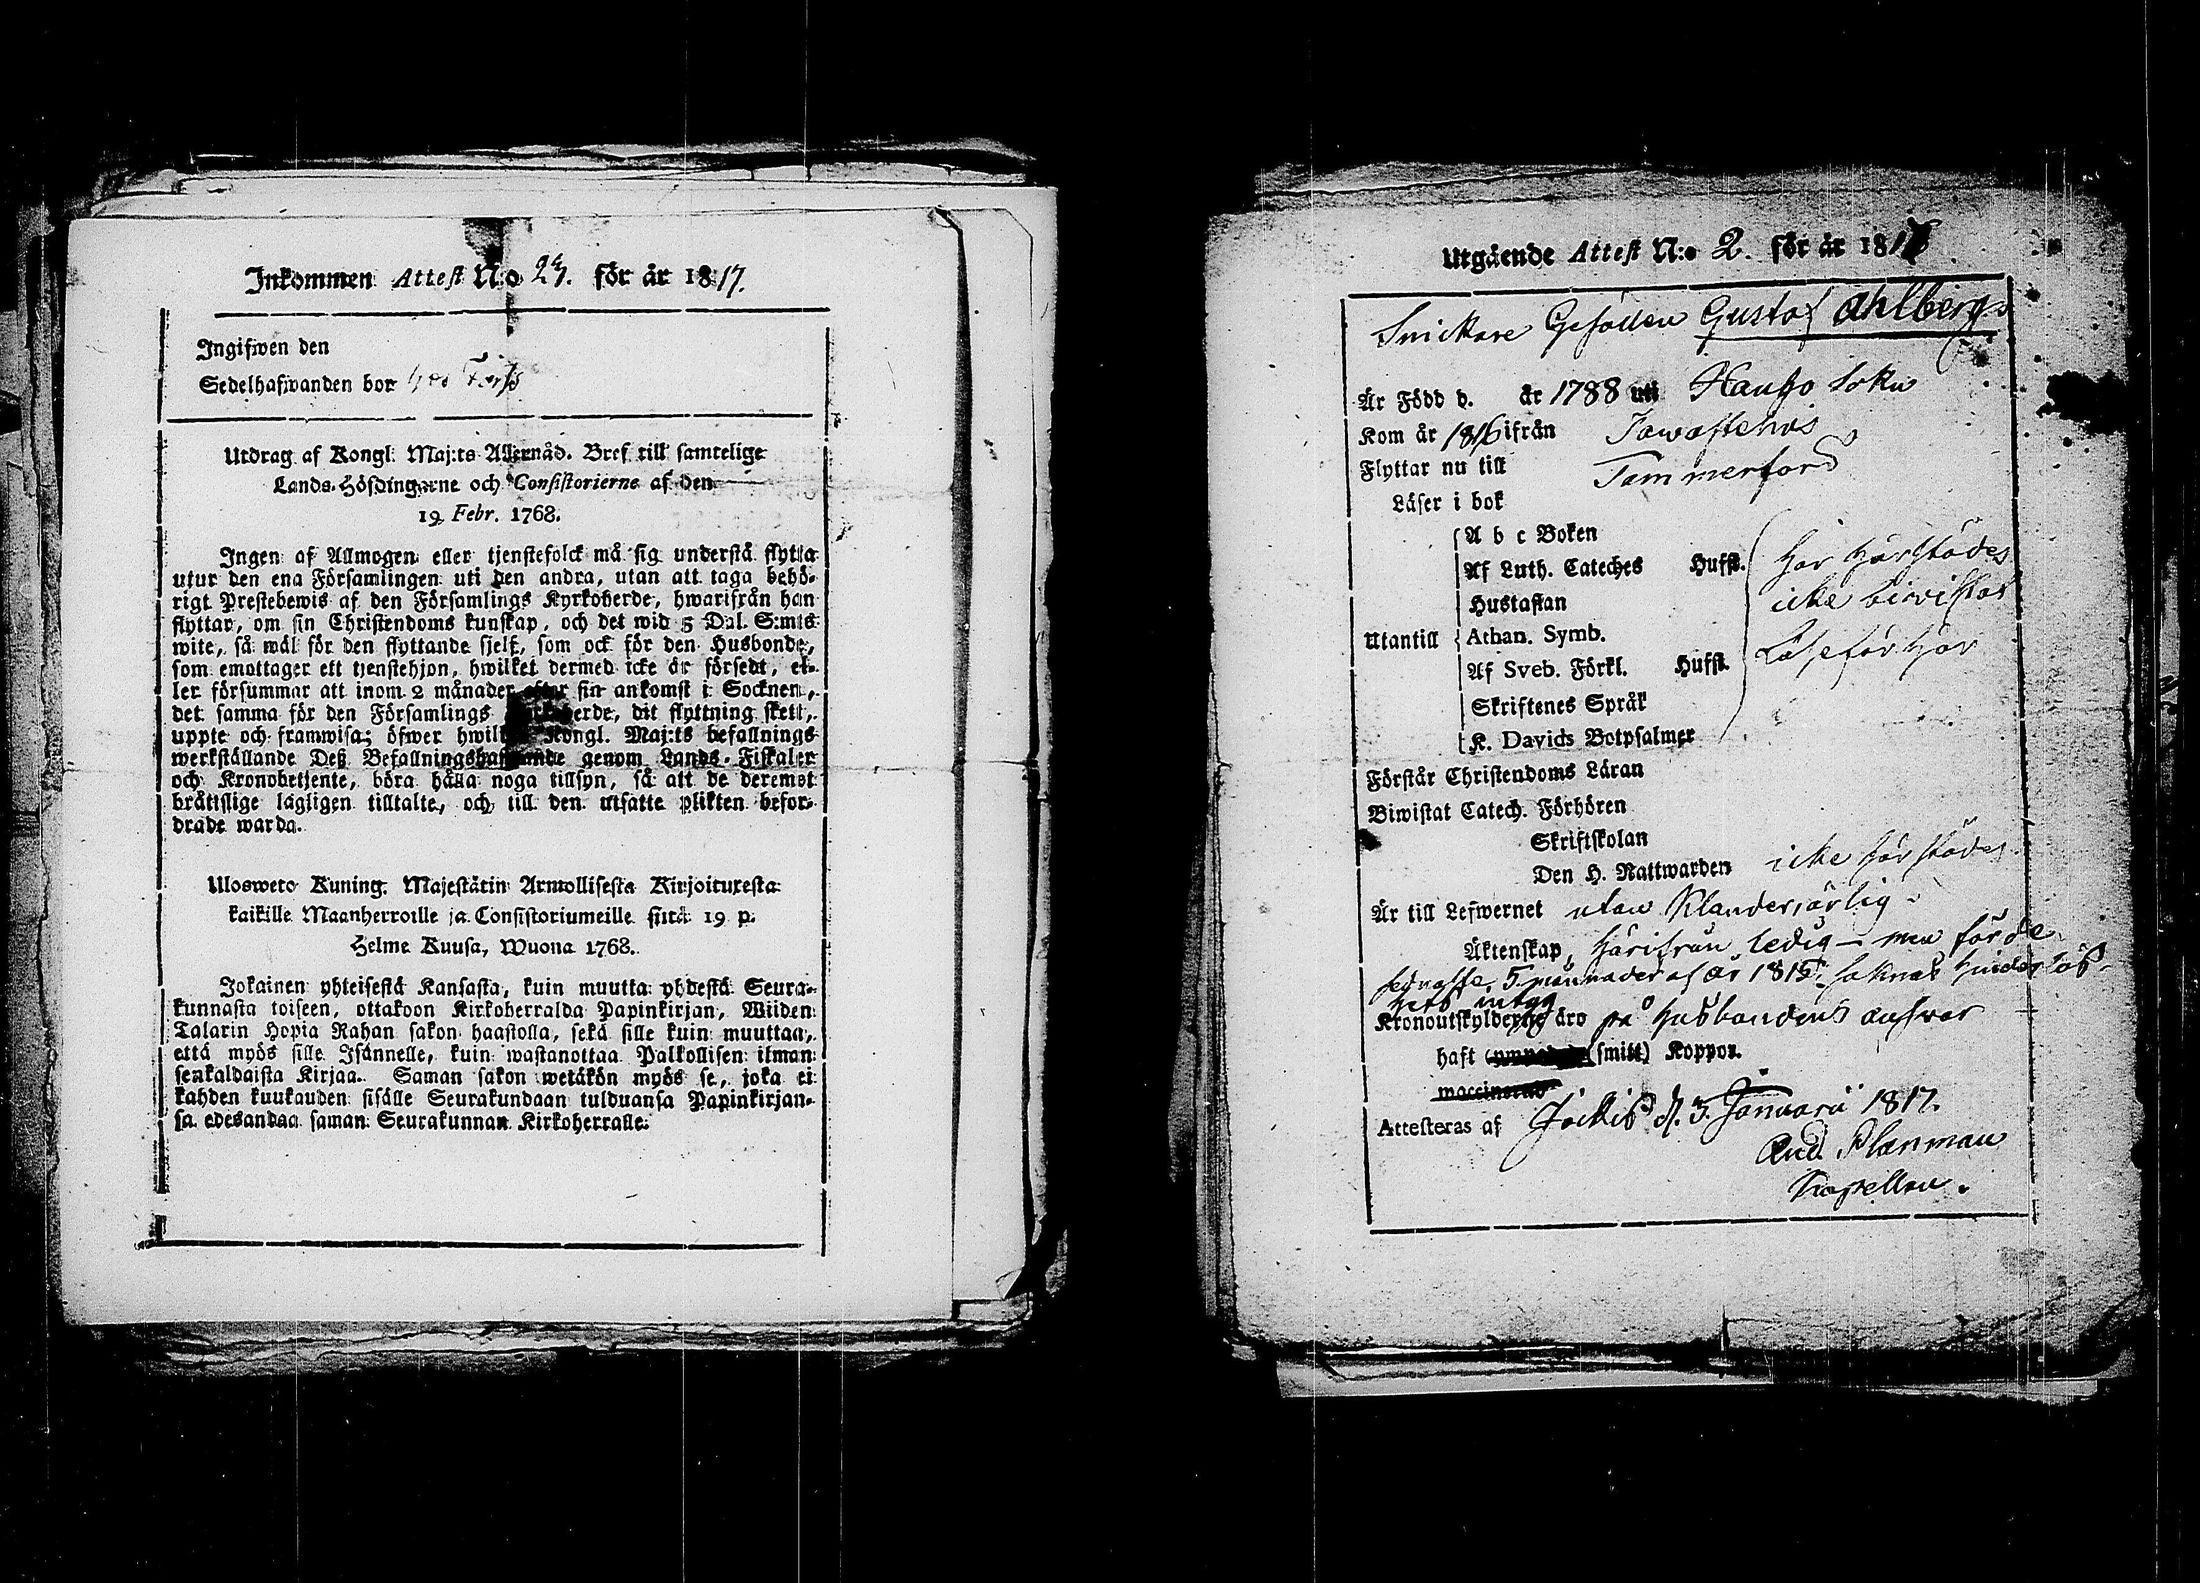 Inkommen Attest N:o 27. för år 1817.
Ingifwen den
Sedelhafwanden bor hos
Utdrag af Kongl. Maj:ts Allernåd. Bref till samtelige
Lands-Höfdingarne och Consistorierne af den
19 Febr. 1768.
Ingen af Allmogen eller tjenstefolck må sig understå flytta
utur den ena Församlingen uti den andra, utan att taga behö-
rigt Prestebewis af den Församlings Kyrkoherde, hwarifrån han
flyttar, om sin Christendoms kunskap, och det wid 5 Dal. S:mts
wite, så wäl för den flyttande sjelf, som ock för den Husbonde,
som emottager ett tjenstehjon, hwilket dermed icke är försedt, el-
ler försummar att inom 2 månader efter sin ankomst i Socknen,
det samma för den Församlings Kyrkoherde, dit flyttning skett,
uppte och framwisa; öfwer hwilket Kongl. Maj:ts befallnings
werkställande Deß Befallningshafwande genom Lands-Fiskaler
och Kronobetjente, böra hålla noga tillsyn, så att de deremot
bråttslige lagligen tilltalte, och till den utsatte plikten befor-
drade warda.
Ulosweto Kuning. Majestätin Armollisesta Kirjoituxesta
kaikille Maanherroille ja Consistoriumeille siitä 19 p.
Helme Kuusa, Wuona 1768.
Jokainen yhteisestä Kansasta, kuin muutta yhdestä Seura-
kunnasta toiseen, ottakoon Kirkoherralda Papinkirjan, Wiiden
Talarin Hopia Rahan sakon haastolla, sekä sille kuin muuttaa,
että myös sille Isännelle, kuin wastanottaa Palkollisen ilman
senkaldaista Kirjaa. Saman sakon wetäkön myös se, joka ei
kahden kuukauden sisälle Seurakundaan tulduansa Papinkirjan-
sa edesandaa saman Seurakunnan Kirkoherralle.
Utgående Attest N:o 2. för år 1817
Snickare Gesällen Gustaf Ahlberg
Är Född d. år 1788 uti Hauho Sokn
Kom år 1816 ifrån Tawastehus
Flyttar nu till Tammerfors
Läser i bok
A b c Boken
Af Luth. Cateches Hufst. har härstädes
Hustaflan icke biwistat
Utantill Athan. Symb.
Af Sveb. Förkl. Hufst. Läseförhör
Skriftenes Språk
K. Davids Botpsalmer
Förstår Christendoms Läran
Biwistat Catech. Förhören
Skriftskolan
Den H. Nattwarden icke härstädes
Är till Lefwernet utan klander, ärlig
Äktenskap, härifrån ledig – men för de
sednaste 5 månader af år 1815 saknas hinderslös-
hets intyg
Kronoutskylderne äro på husbondens answar
haft (smitt) Koppor.
vaccinerad
Attesteras af Jockis d. 3 Januarii 1817.
And. Planman
Kapellan.